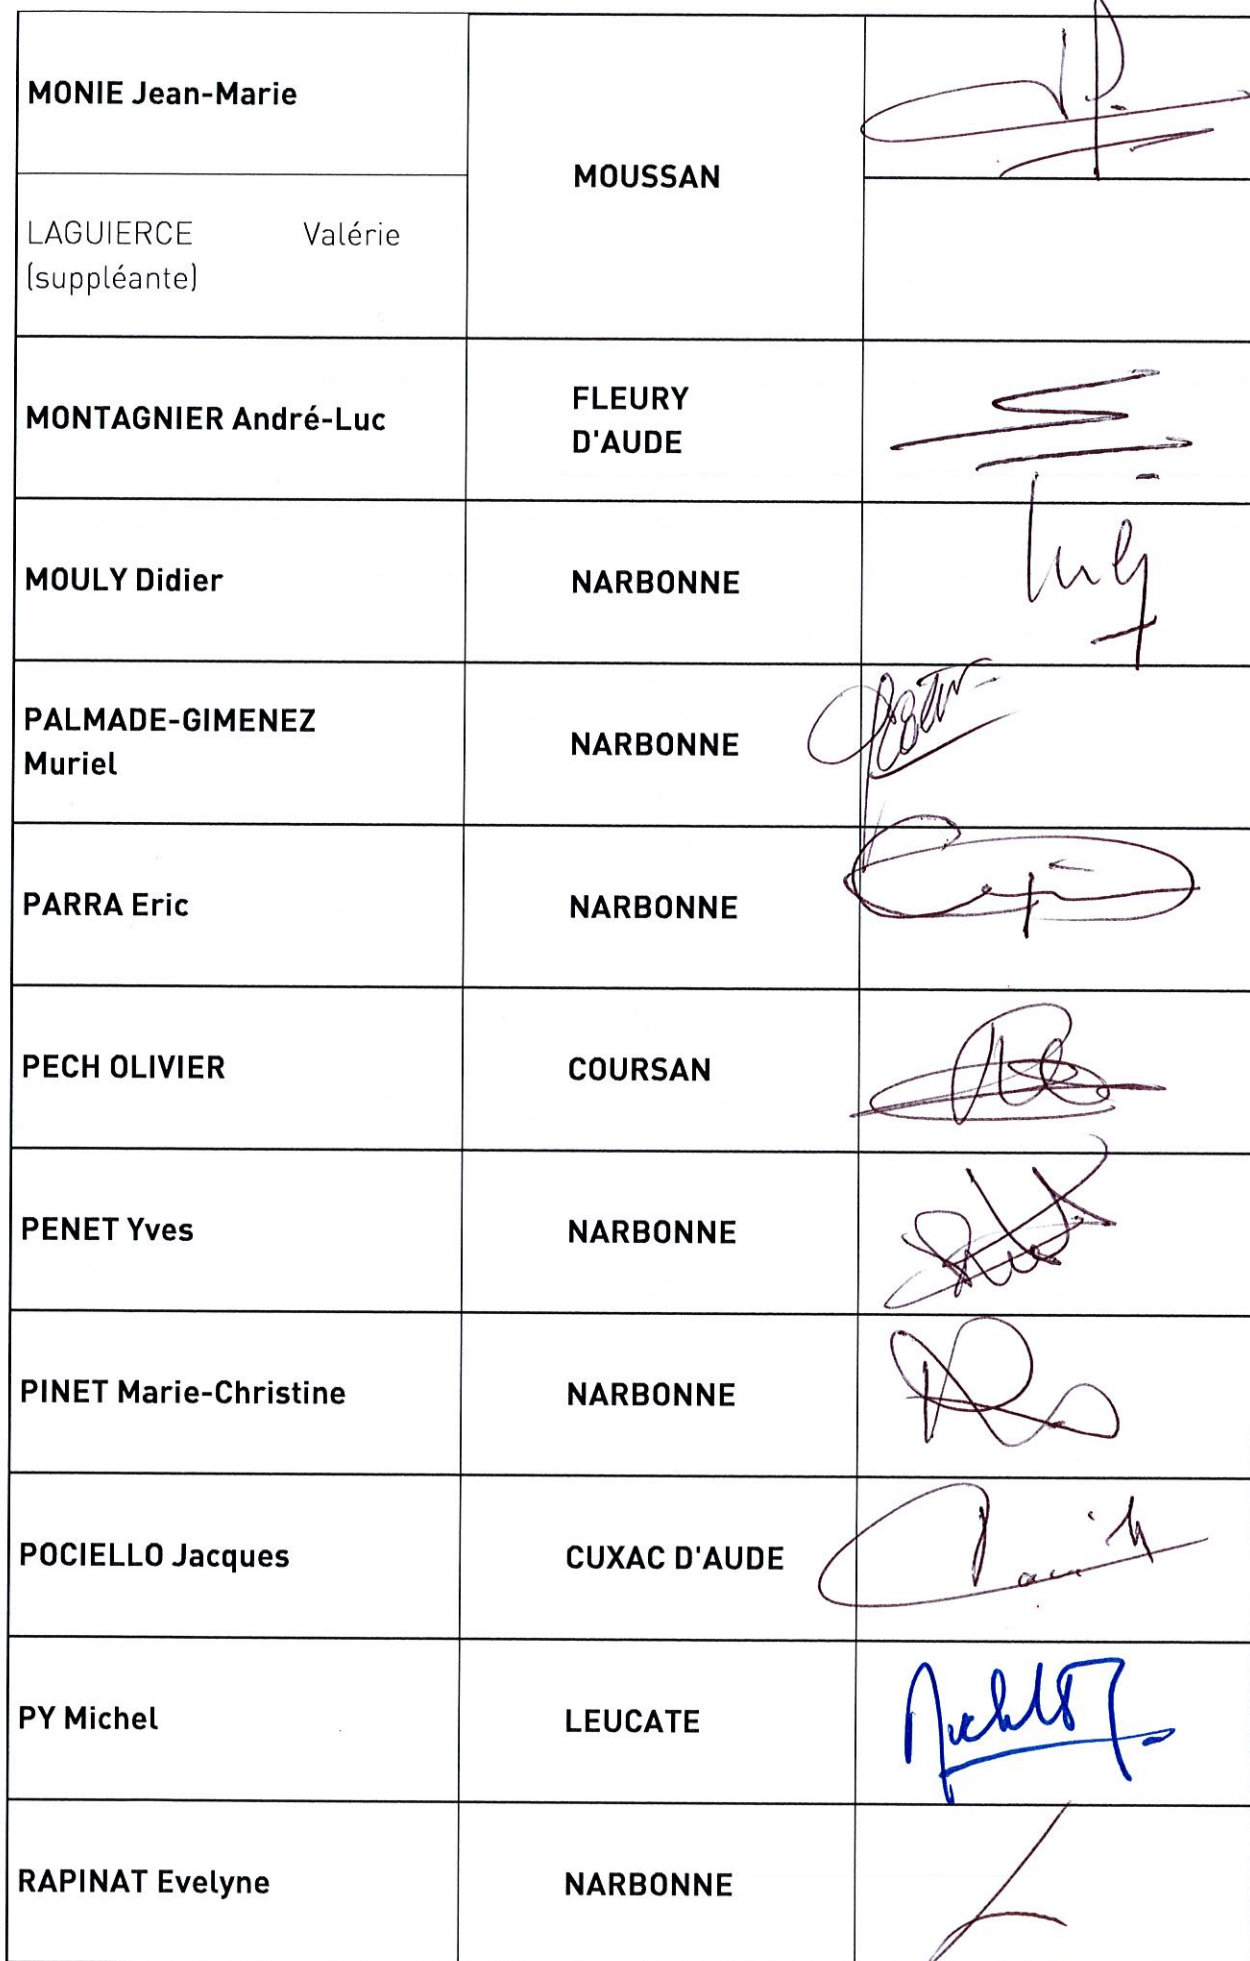 MONIE Jean-Marie
MOUSSAN
LAGUIERCE Valérie
(suppléante)
MONTAGNIER André-Luc
FLEURY
D'AUDE
MOULY Didier
NARBONNE
PALMADE-GIMENEZ
Muriel
NARBONNE
PARRA Eric
NARBONNE
PECH OLIVIER
COURSAN
PENET Yves
NARBONNE
PINET Marie-Christine
NARBONNE
POCIELLO Jacques
CUXAC D'AUDE
PY Michel
LEUCATE
RAPINAT Evelyne
NARBONNE